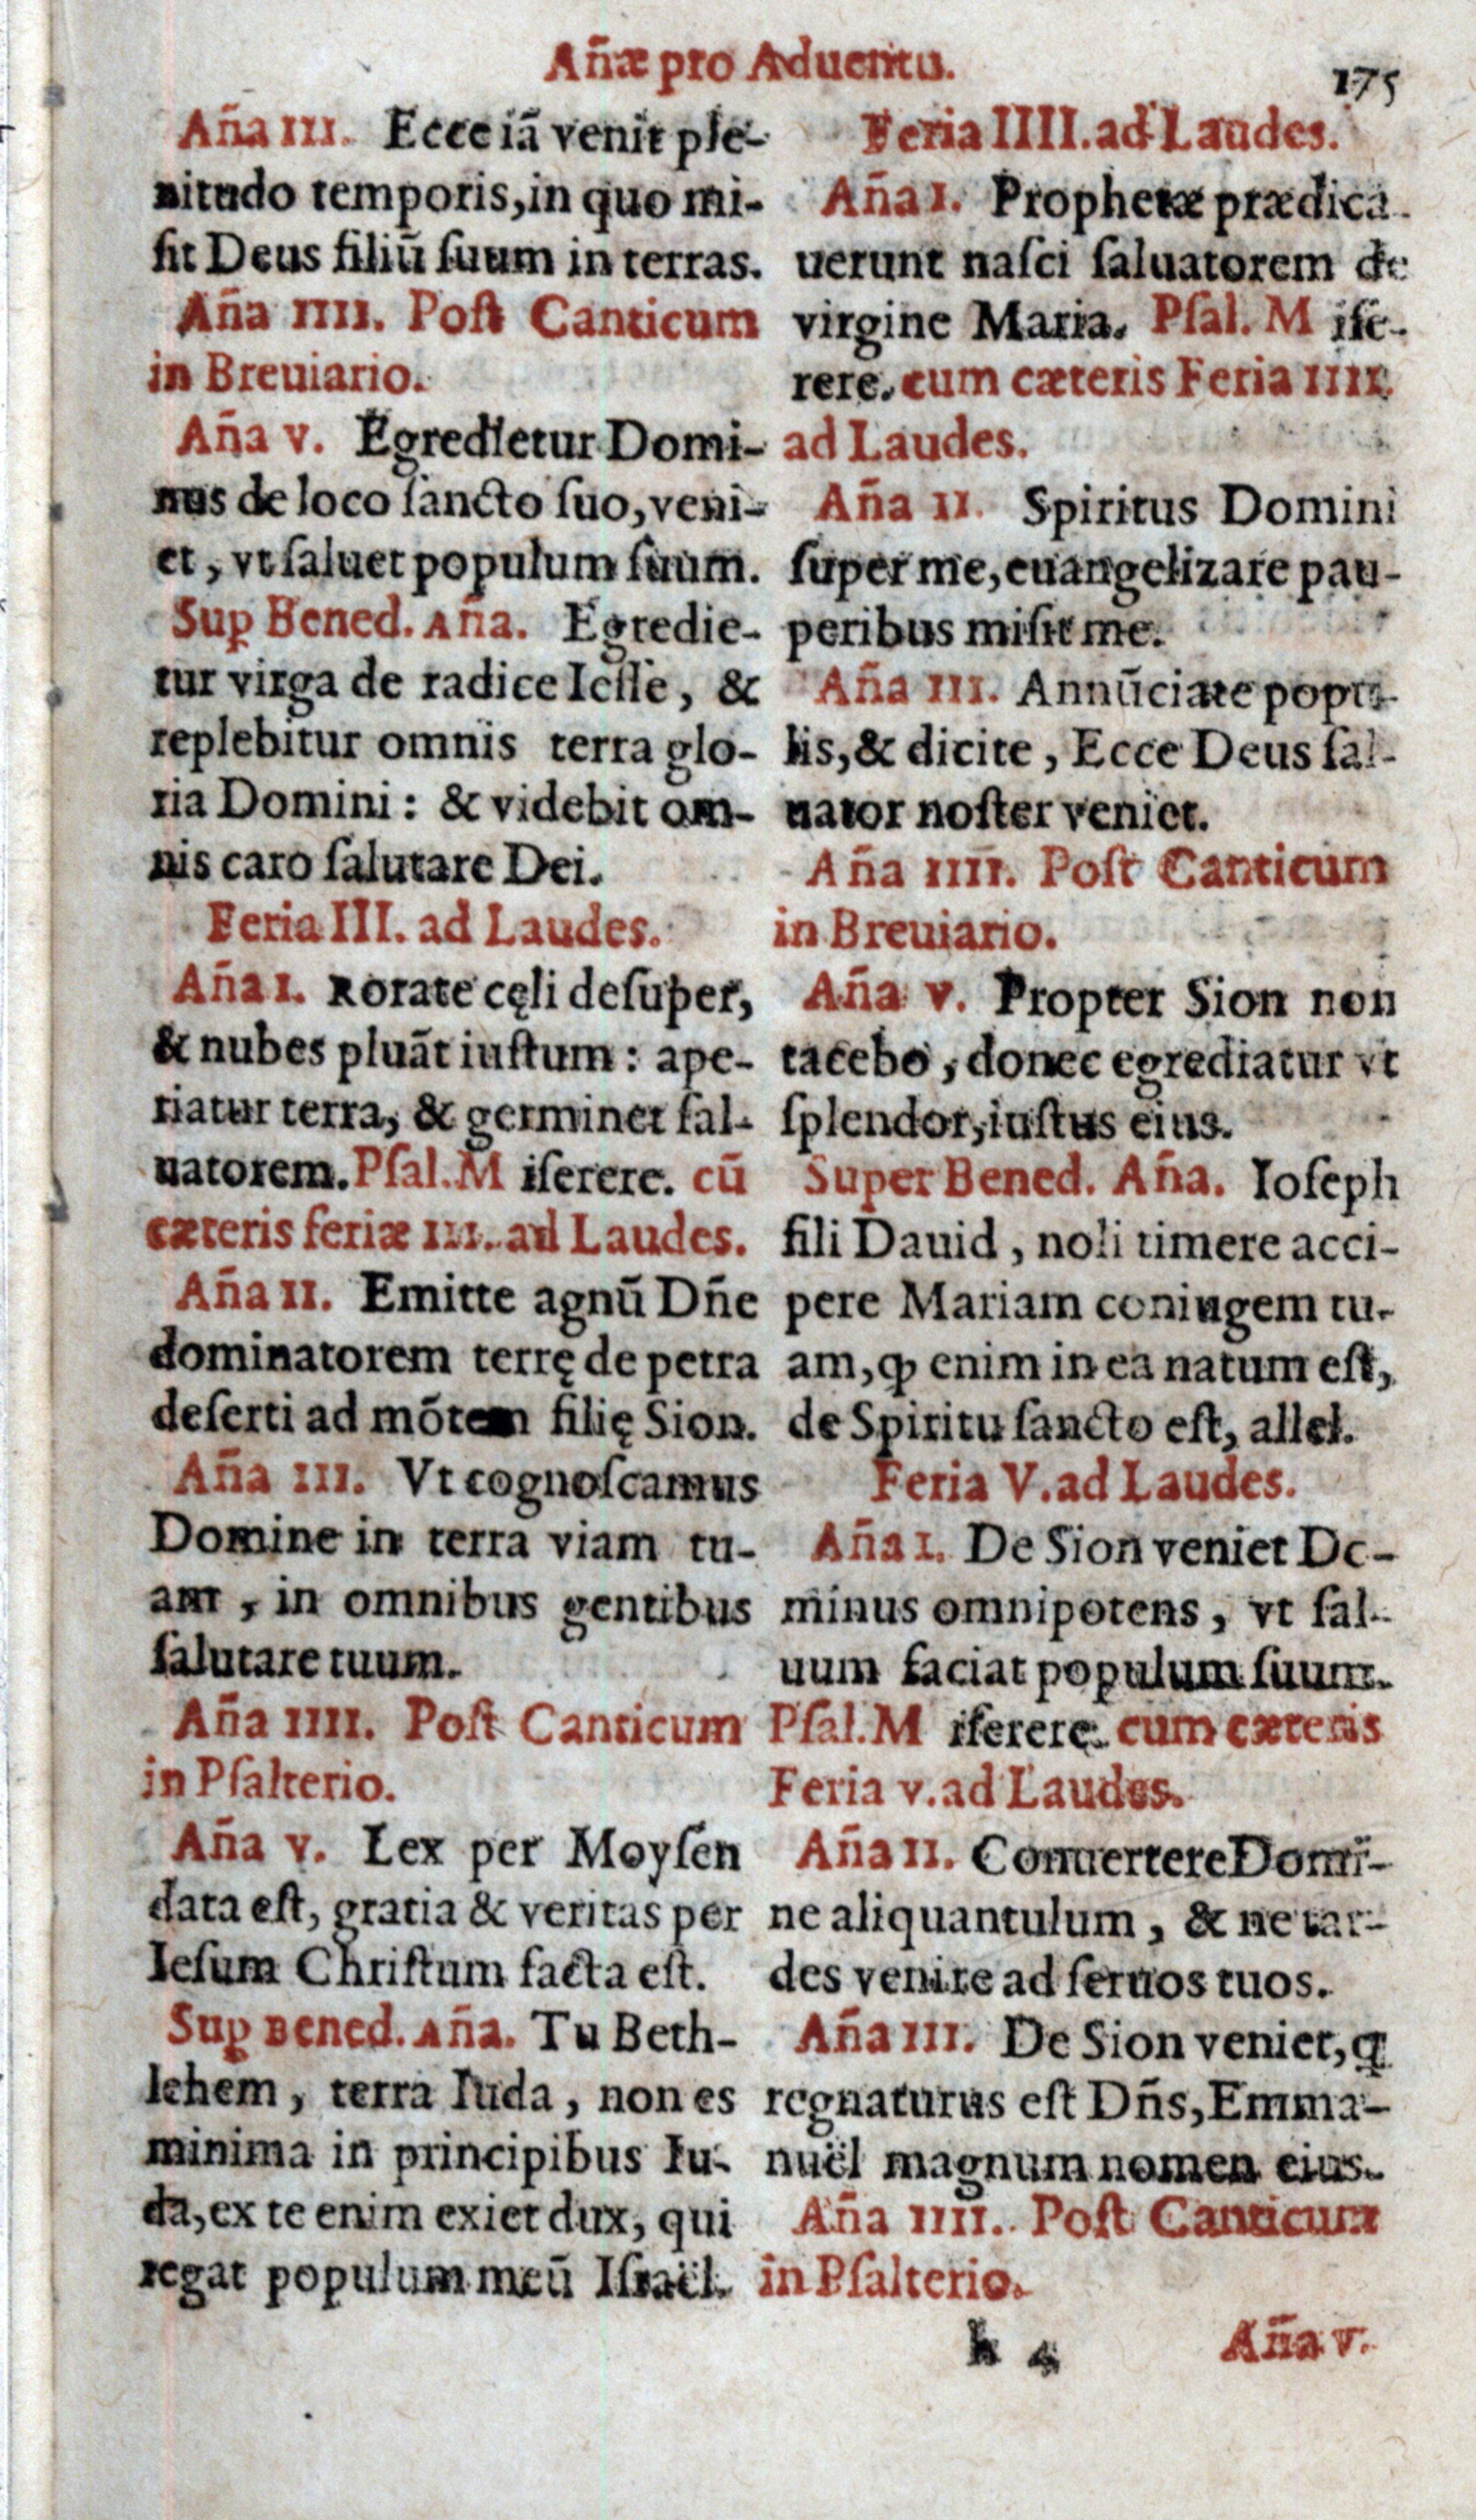 Añæ pro Aduentu.
175
Aña III. Ecce iã venit ple-
nitudo temporis, in quo mi-
ſit Deus filiũ ſuum in terras.
Aña IIII. Poſt Canticum
in Breuiario.
Aña V. Egredietur Domi-
nus de loco ſancto ſuo, veni-
et, vt ſaluet populum ſuum.
Sup Bened. Aña. Egredie-
tur virga de radice Ieſſe, &
replebitur omnis terra glo-
ria Domini: & videbit om-
nis caro ſalutare Dei.
Feria III. ad Laudes.
Aña I. Rorate cęli deſuper,
& nubes pluãt iuſtum: ape-
riatur terra, & germinet ſal-
uatorem. Pſal. M iſerere. cũ
cæteris feriæ III. ad Laudes.
Aña II. Emitte agnũ Dñe
dominatorem terrę de petra
deſerti ad mõtem filię Sion.
Aña III. Vt cognoſcamus
Domine in terra viam tu-
am, in omnibus gentibus
ſalutare tuum.
Aña IIII. Poſt Canticum
in Pſalterio.
Aña V. Lex per Moyſen
data eſt, gratia & veritas per
Ieſum Chriſtum facta eſt.
Sup Bened. Aña. Tu Beth-
lehem, terra Iuda, non es
minima in principibus Iu-
da, ex te enim exiet dux, qui
regat populum meũ Iſraël.
Feria IIII. ad Laudes.
Aña I. Prophetæ prædica-
uerunt naſci ſaluatorem de
virgine Maria. Pſal. M iſe-
rere. cum cæteris Feria IIII.
ad Laudes.
Aña II. Spiritus Domini
ſuper me, euangelizare pau-
peribus miſit me.
Aña III. Annũciate popu-
lis, & dicite, Ecce Deus ſal-
uator noſter veniet.
Aña IIII. Poſt Canticum
in Breuiario.
Aña V. Propter Sion non
tacebo, donec egrediatur vt
ſplendor, iuſtus eius.
Super Bened. Aña. Ioſeph
fili Dauid, noli timere acci-
pere Mariam coniugem tu-
am, ꝙ enim in ea natum eſt,
de Spiritu ſancto eſt, allel.
Feria V. ad Laudes.
Aña I. De Sion veniet Do-
minus omnipotens, vt ſal-
uum faciat populum ſuum.
Pſal. M iſerere. cum cæteris
Feria v. ad Laudes.
Aña II. Conuertere Domi-
ne aliquantulum, & ne tar-
des venire ad ſeruos tuos.
Aña III. De Sion veniet, q
regnaturus eſt Dñs, Emma-
nuël magnum nomen eius.
Aña IIII. Poſt Canticum
in Pſalterio.
h 4
Aña v.